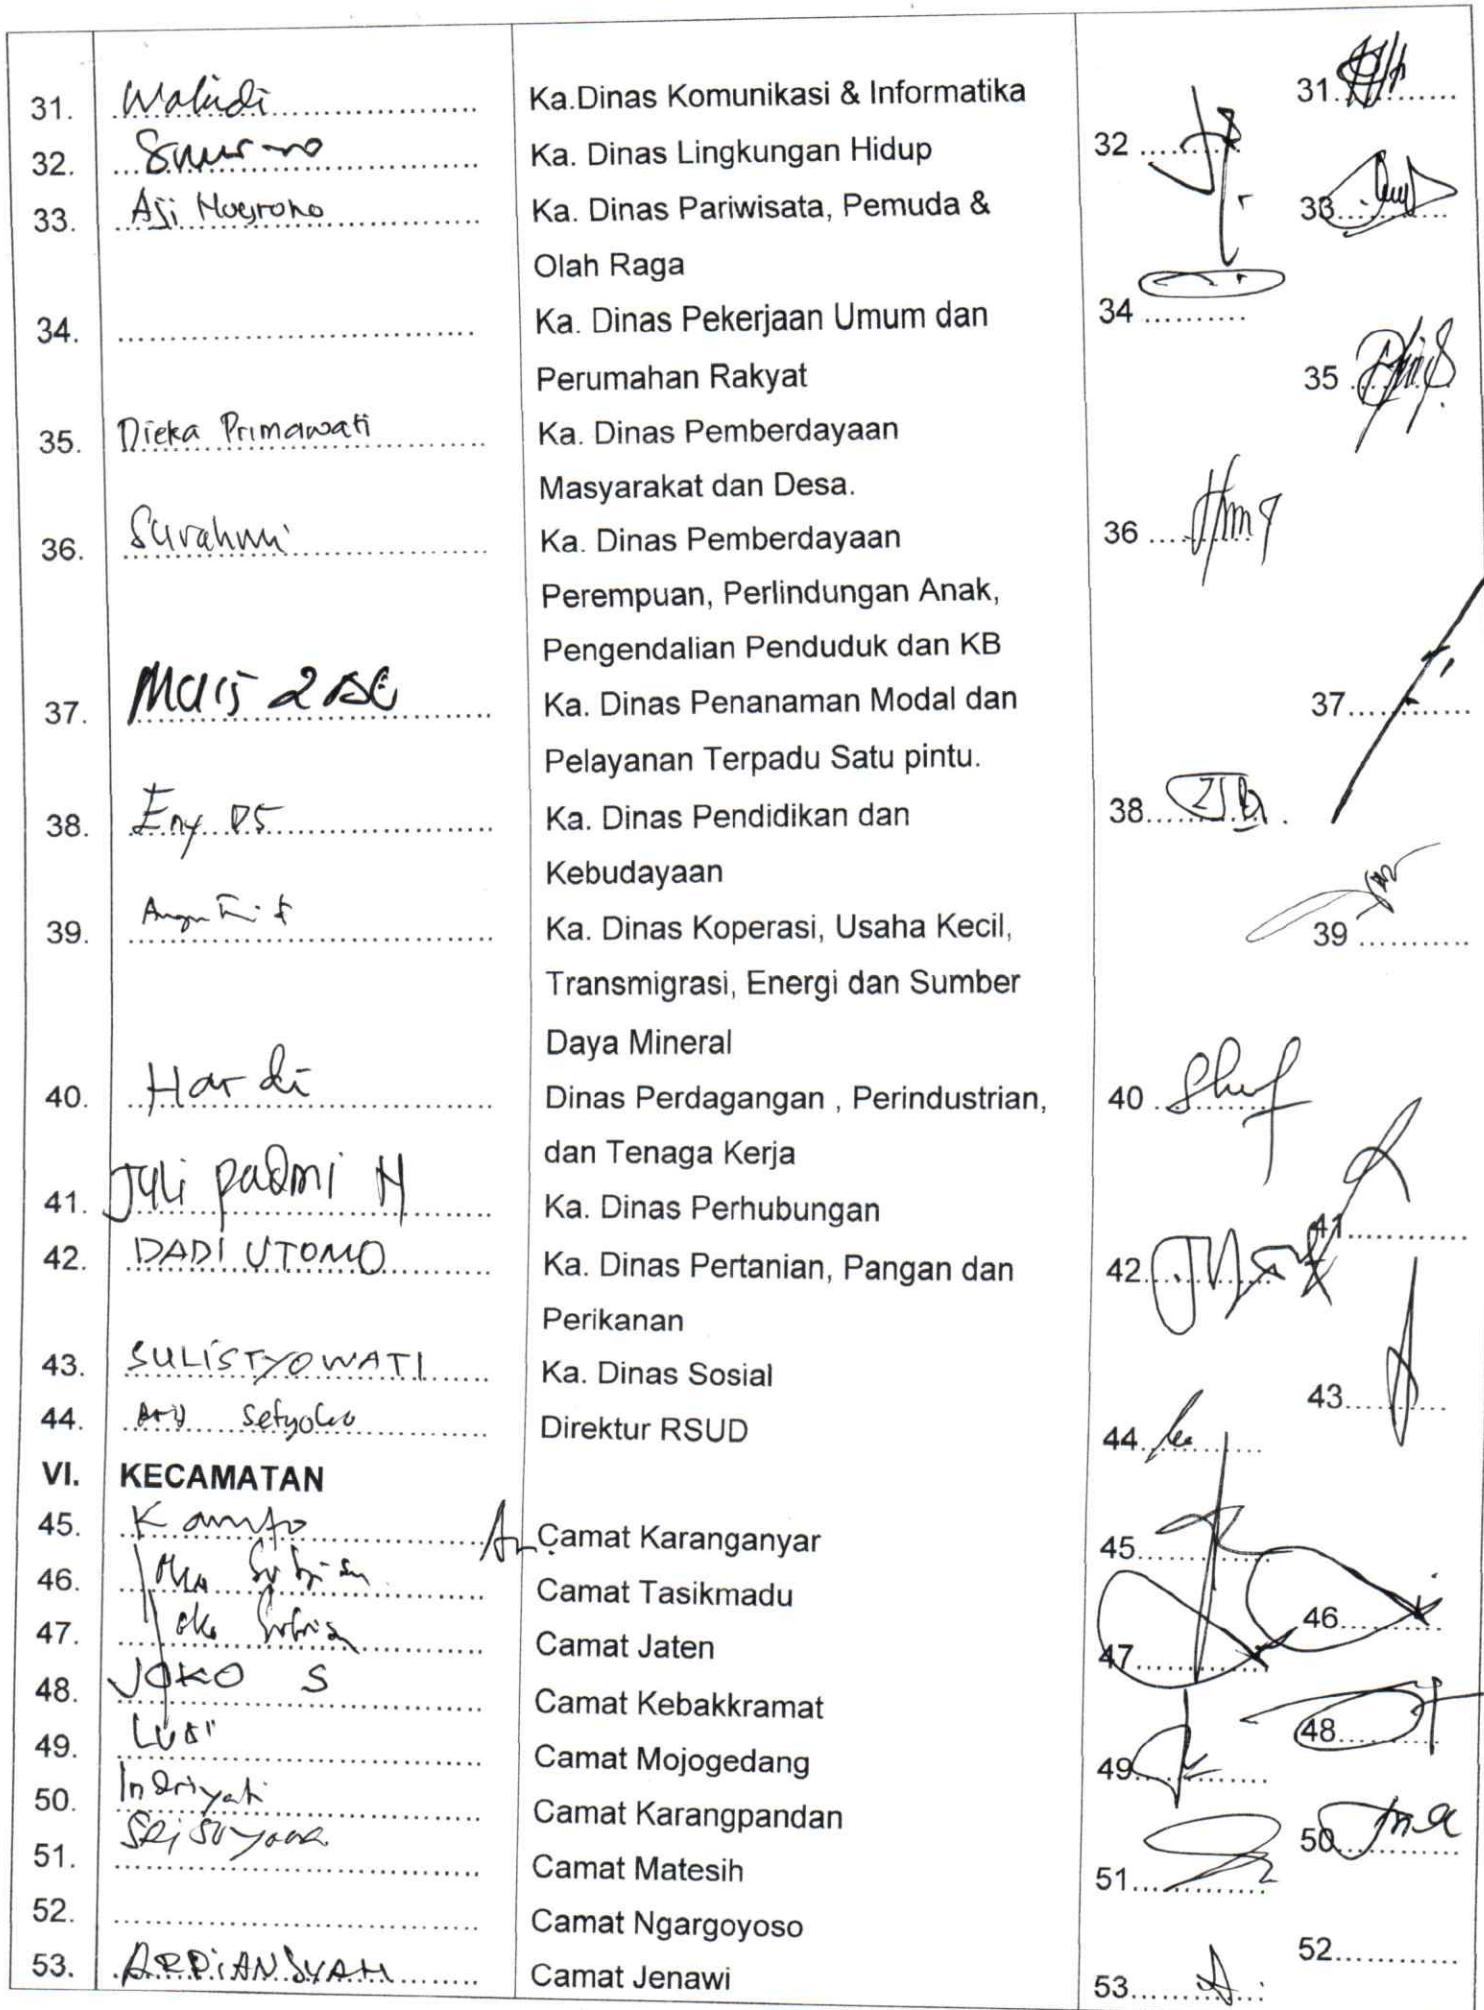 31. Walidi Ka.Dinas Komunikasi & Informatika 31
32. Ka. Dinas Lingkungan Hidup 32
33. Aji Ka. Dinas Pariwisata, Pemuda & 33
Olah Raga
34. Ka. Dinas Pekerjaan Umum dan 34
Perumahan Rakyat
35. Dieka Primawati Ka. Dinas Pemberdayaan 35
Masyarakat dan Desa.
36. Surahmi Ka. Dinas Pemberdayaan 36
Perempuan, Perlindungan Anak,
Pengendalian Penduduk dan KB
37. Ka. Dinas Penanaman Modal dan 37
Pelayanan Terpadu Satu pintu.
38. Eny DS Ka. Dinas Pendidikan dan 38
Kebudayaan
39. Ka. Dinas Koperasi, Usaha Kecil, 39
Transmigrasi, Energi dan Sumber
Daya Mineral
40. Hardi Dinas Perdagangan , Perindustrian, 40
dan Tenaga Kerja
41. Juli padmi H Ka. Dinas Perhubungan 41
42. DADI UTOMO Ka. Dinas Pertanian, Pangan dan 42
Perikanan
43. SULISTYOWATI Ka. Dinas Sosial 43
44. Setyoko Direktur RSUD 44
VI. KECAMATAN
45. An Camat Karanganyar 45
46. Camat Tasikmadu 46
47. Camat Jaten 47
48. JOKO S Camat Kebakkramat 48
49. Camat Mojogedang 49
50. Indriyati Camat Karangpandan 50
51. Camat Matesih 51
52. Camat Ngargoyoso 52
53. ARDIANSYAH Camat Jenawi 53